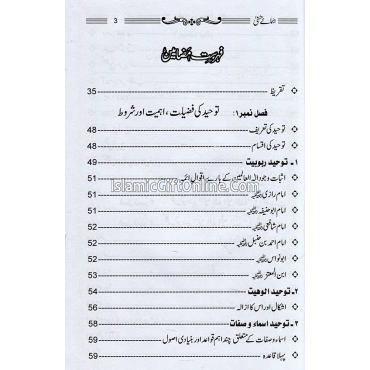 اسمائے حسنیٰ 3
فہرست مضامین
تقریظ 35
فصل نمبر ۱: توحید کی فضیلت، اہمیت اور شروط
توحید کی تعریف 48
توحید کی اقسام 48
۱۔ توحید ربوبیت 49
اثبات وجود الٰہ العالمین کے بارے اقوال ائمہ 51
امام رازی رحمہ اللہ 51
امام ابوحنیفہ رحمہ اللہ 51
امام شافعی رحمہ اللہ 52
امام احمد بن حنبل رحمہ اللہ 52
ابونواس رحمہ اللہ 52
ابن المعتز رحمہ اللہ 53
۲۔ توحید الوھیت 54
اشکال اور اس کا ازالہ 56
۳۔ توحید اسماء و صفات 58
اسماء وصفات کے متعلق چند اہم قواعد اور بنیادی اصول 59
پہلا قاعدہ 59
IslamicGiftOnline.Com